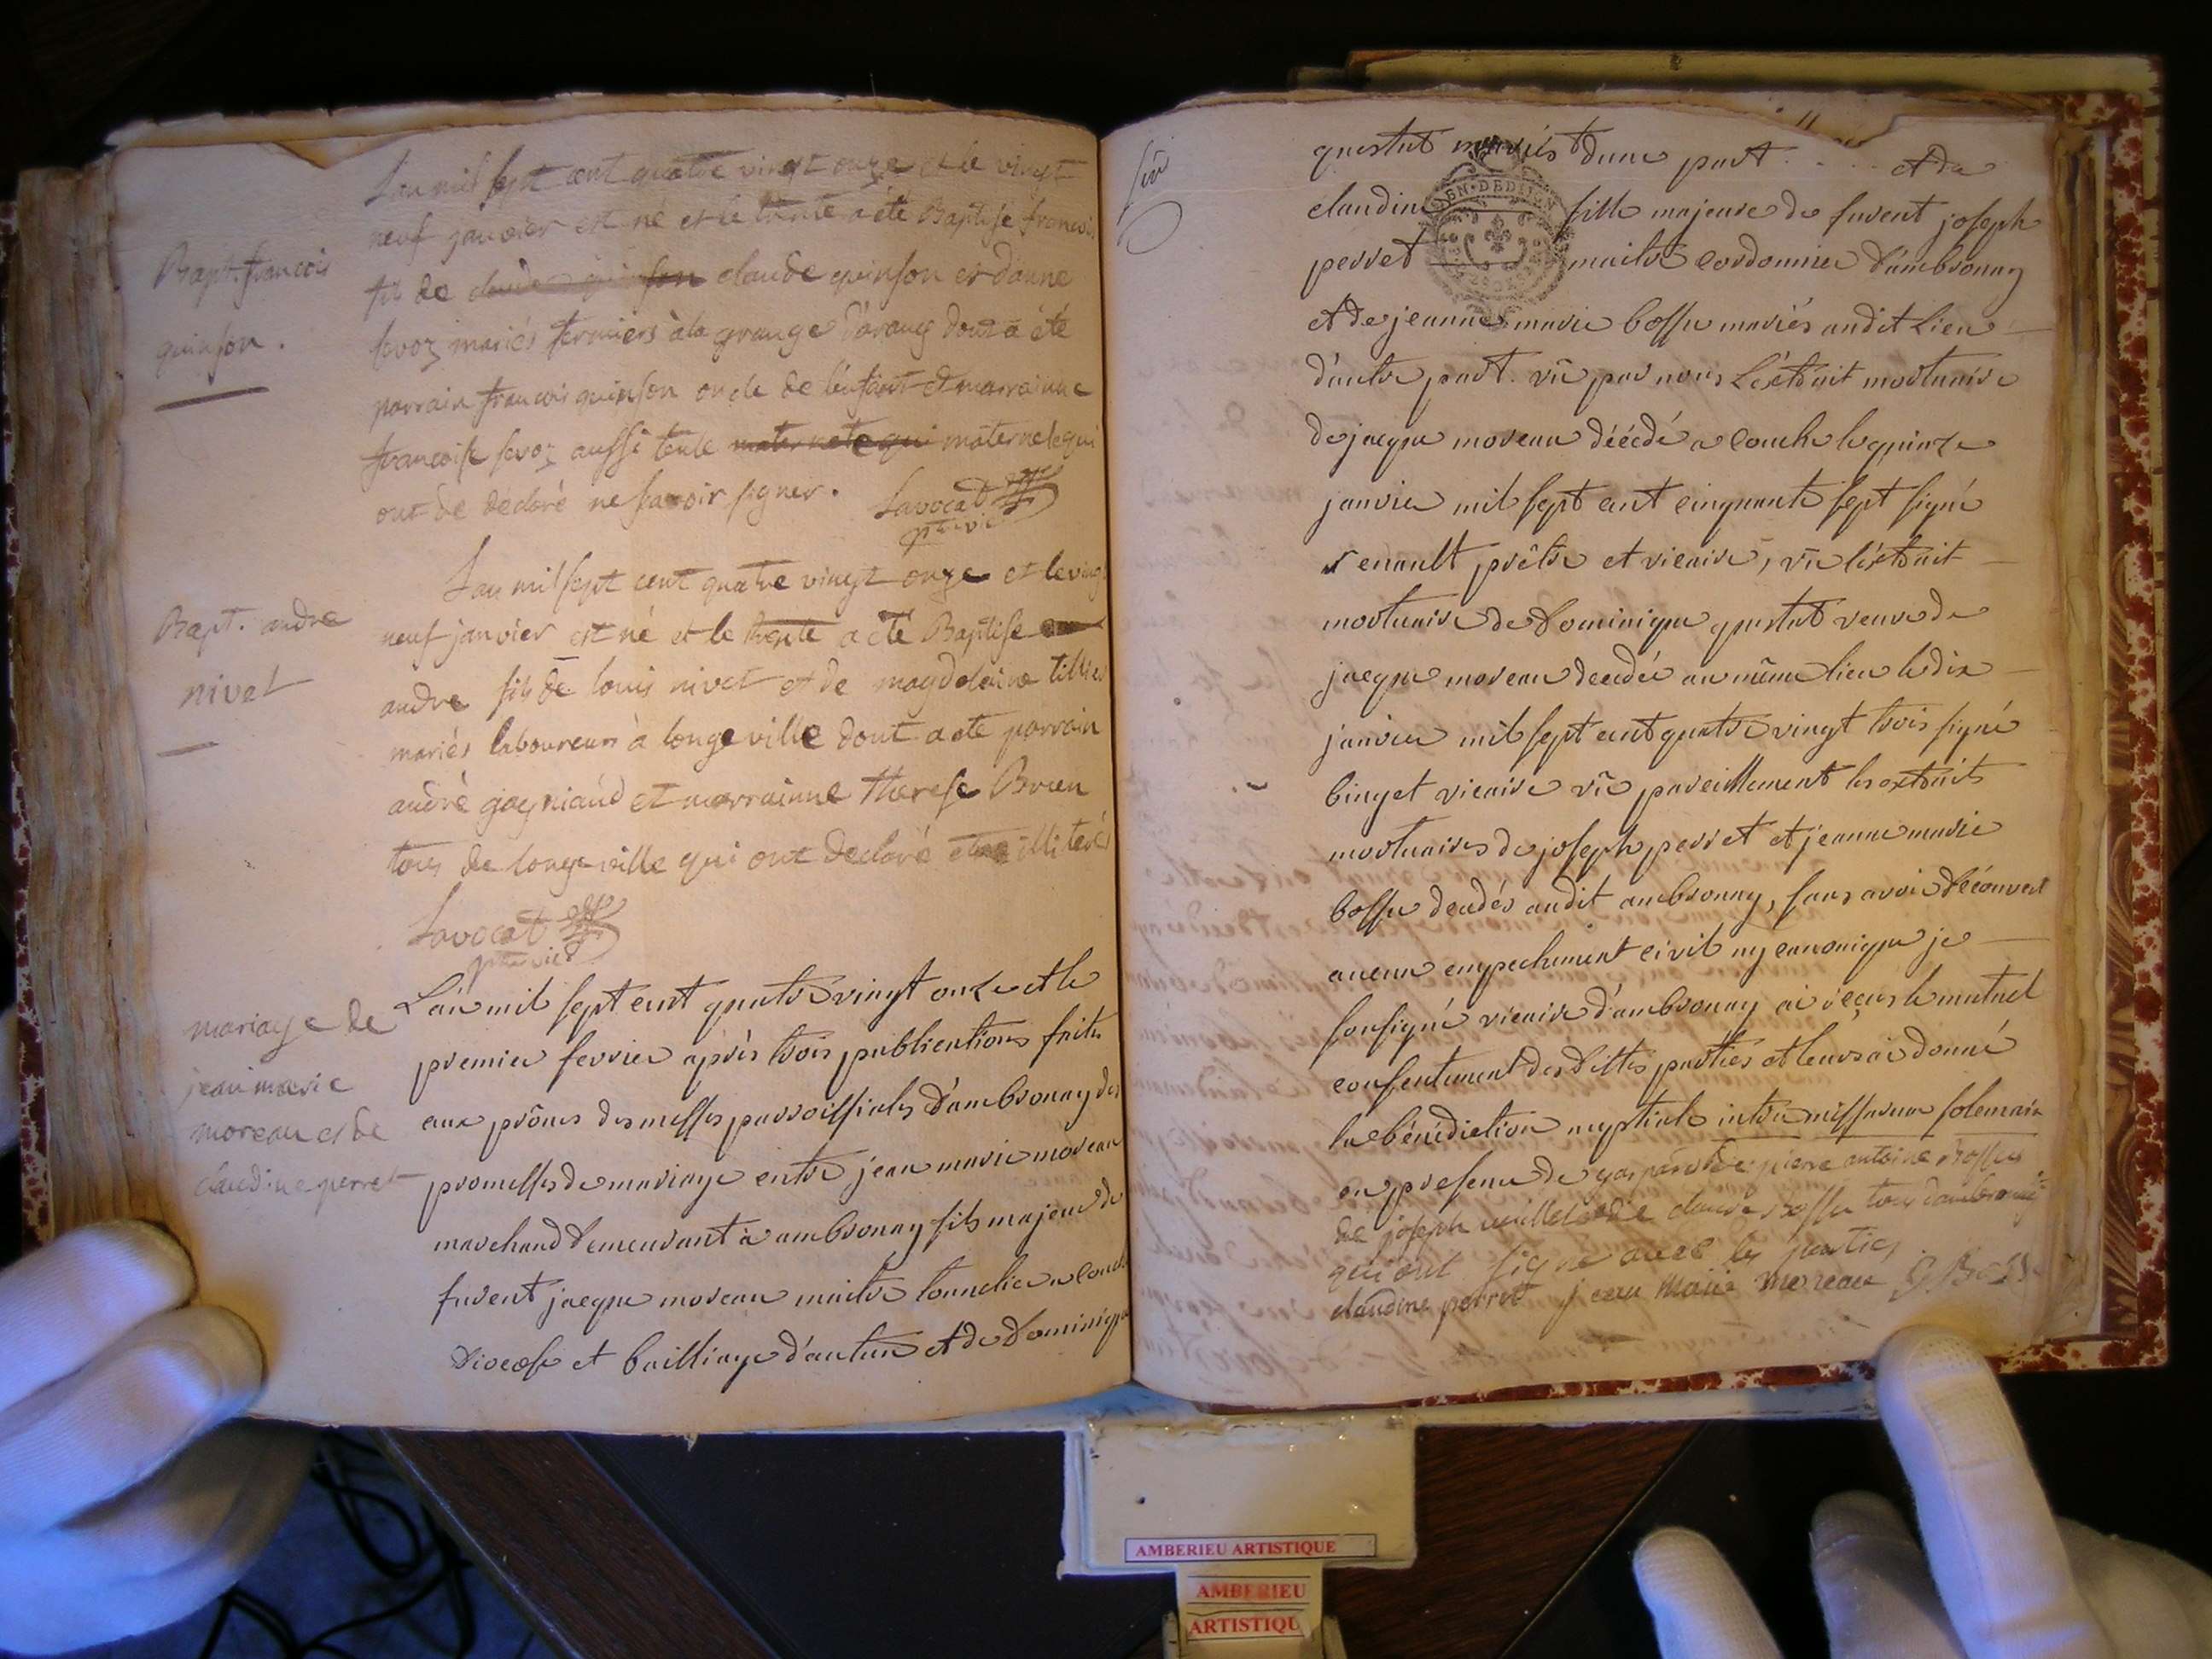 L'an mil sept cent quatre vingt onze et le vingt
neuf janvier est né et le trente a été Baptisé francois
fils de claude quinson claude quinson et d'anne
sevoz mariés fermiers à la grange d'arang dont a été
parrain francois quinson oncle de l'enfant et marrainne
francoise sevoz aussi tente maternele qui maternele qui
ont de déclaré ne savoir signer. Lavocat
ptre vic
Bapt. francois
quinson.
L'an mil sept cent quatre vingt onze et le vingt
neuf janvier est né et le trente a été Baptise
andre fils de louis nivet et de magdelaine
mariés laboureurs à longeville dont a ete parrain
andré gagniaud et marrainne therese Brun
tous de longeville qui ont declaré etre illiterés
Lavocat
ptre vic
Bapt. andre
nivet
L'an mil sept cent quatre vingt onze et le
premier fevrier après trois publications faites
aux prônes des messes parroissiales d'ambronay des
promesses de mariage entre jean marie moreau
marchand demeurant à ambronay fils majeur de
fuvent jacque moreau maitre tonnelier a couche
diocèse et bailliage d'autun et de dominique
mariage de
jean marie
moreau et de
claudine perret
questut mariés d'une part . . . et de
claudine fille majeure de fuvent joseph
EN·DEDIEN
perret maitre cordonnier d'ambronay
et de jeanne marie bossu mariés audit lieu
d'autre part. vû par nous l'extrait mortuaire
de jacque moreau décédé a couche le quinze
janvier mil sept cent cinquante sept signé
renault prêtre et vicaire, vû l'extrait
mortuaire de dominique questut veuve de
jacque moreau decedée au même lieu le dix
janvier mil sept cent quatre vingt trois signé
binget vicaire vû pareillement les extraits
mortuaires de joseph perret et jeanne marie
bossu decedés audit ambronay, sans avoir découvert
aucun empechement civil ny canonique je
soussigné vicaire d'ambronay ai reçus le mutuel
consentement des dittes parties et leurs ai donné
la bénédiction nuptiale intra missarum solemnia
en presence de gaspard de pierre antoine Bossu
de joseph de claude Bossu tous d'ambronay
qui ont signé avec les parties
claudine perret jean Marie moreau
AMBERIEU ARTISTIQUE
AMBERIEU
ARTISTIQU